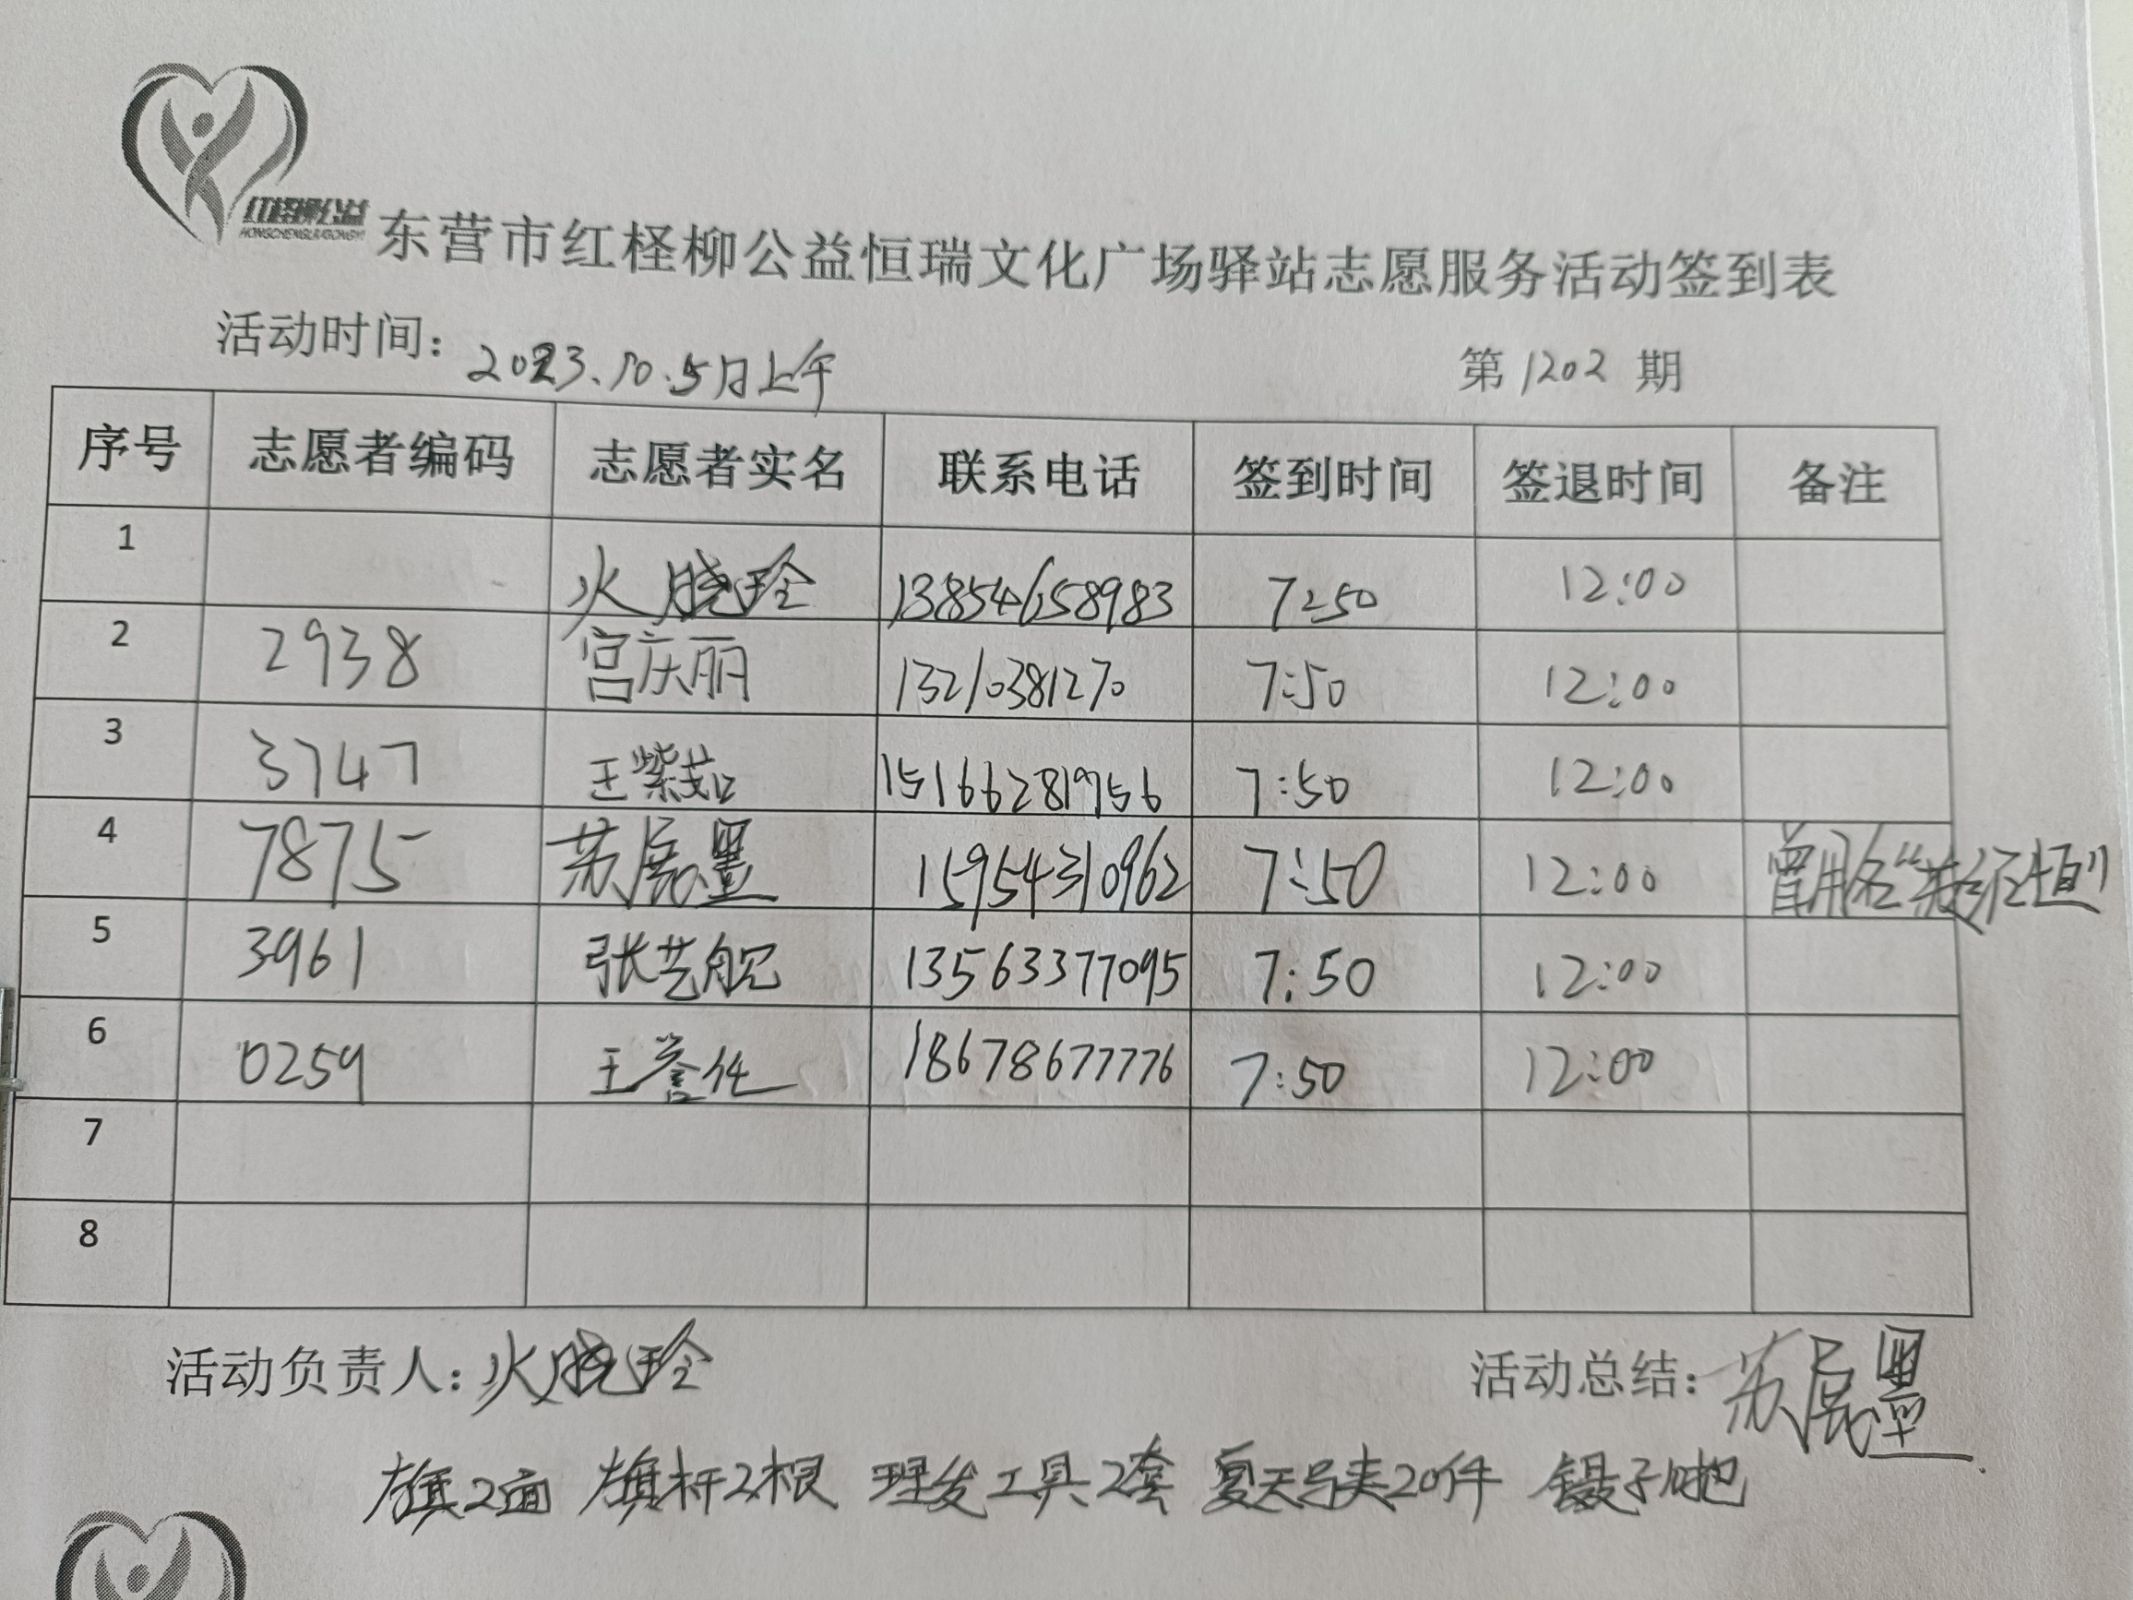 红柽柳公益
东营市红柽柳公益恒瑞文化广场驿站志愿服务活动签到表
活动时间：2023.10.5日上午 第1202期
序号 志愿者编码 志愿者实名 联系电话 签到时间 签退时间 备注
1 火晓玲 13854658983 7:50 12:00
2 2938 宫庆丽 13210381270 7:50 12:00
3 3747 王紫茹 15166281956 7:50 12:00
4 7875 苏展墨 15954310962 7:50 12:00 曾用名“苏
5 3961 张艺舰 13563377095 7:50 12:00
6 0259 王誉化 18678677776 7:50 12:00
7
8
活动负责人：火晓玲 活动总结：苏展墨
旗2面 旗杆2根 理发工具2套 夏天马夹20件 镊子1把